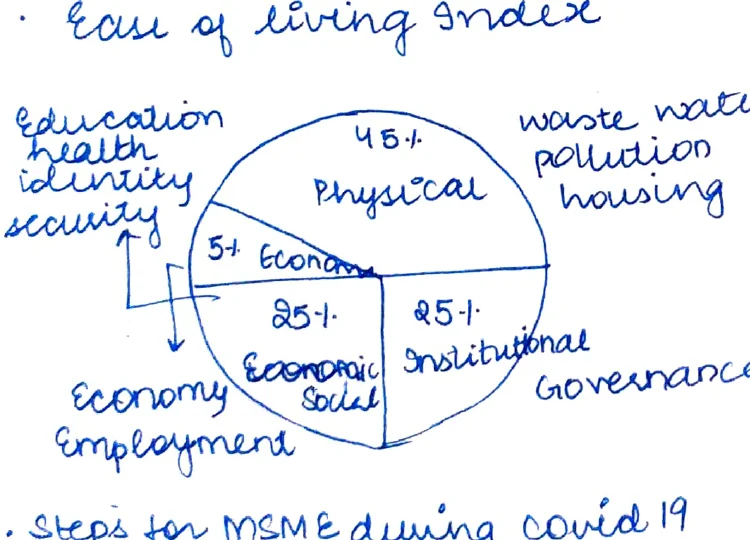 · Ease of living Index
Education
health
identity
security
45%
Physical
waste wate
pollution
housing
5% Econom
25%
Social
25%
Institutional
Governance
Economy
Employment
· Steps for MSME during covid 19